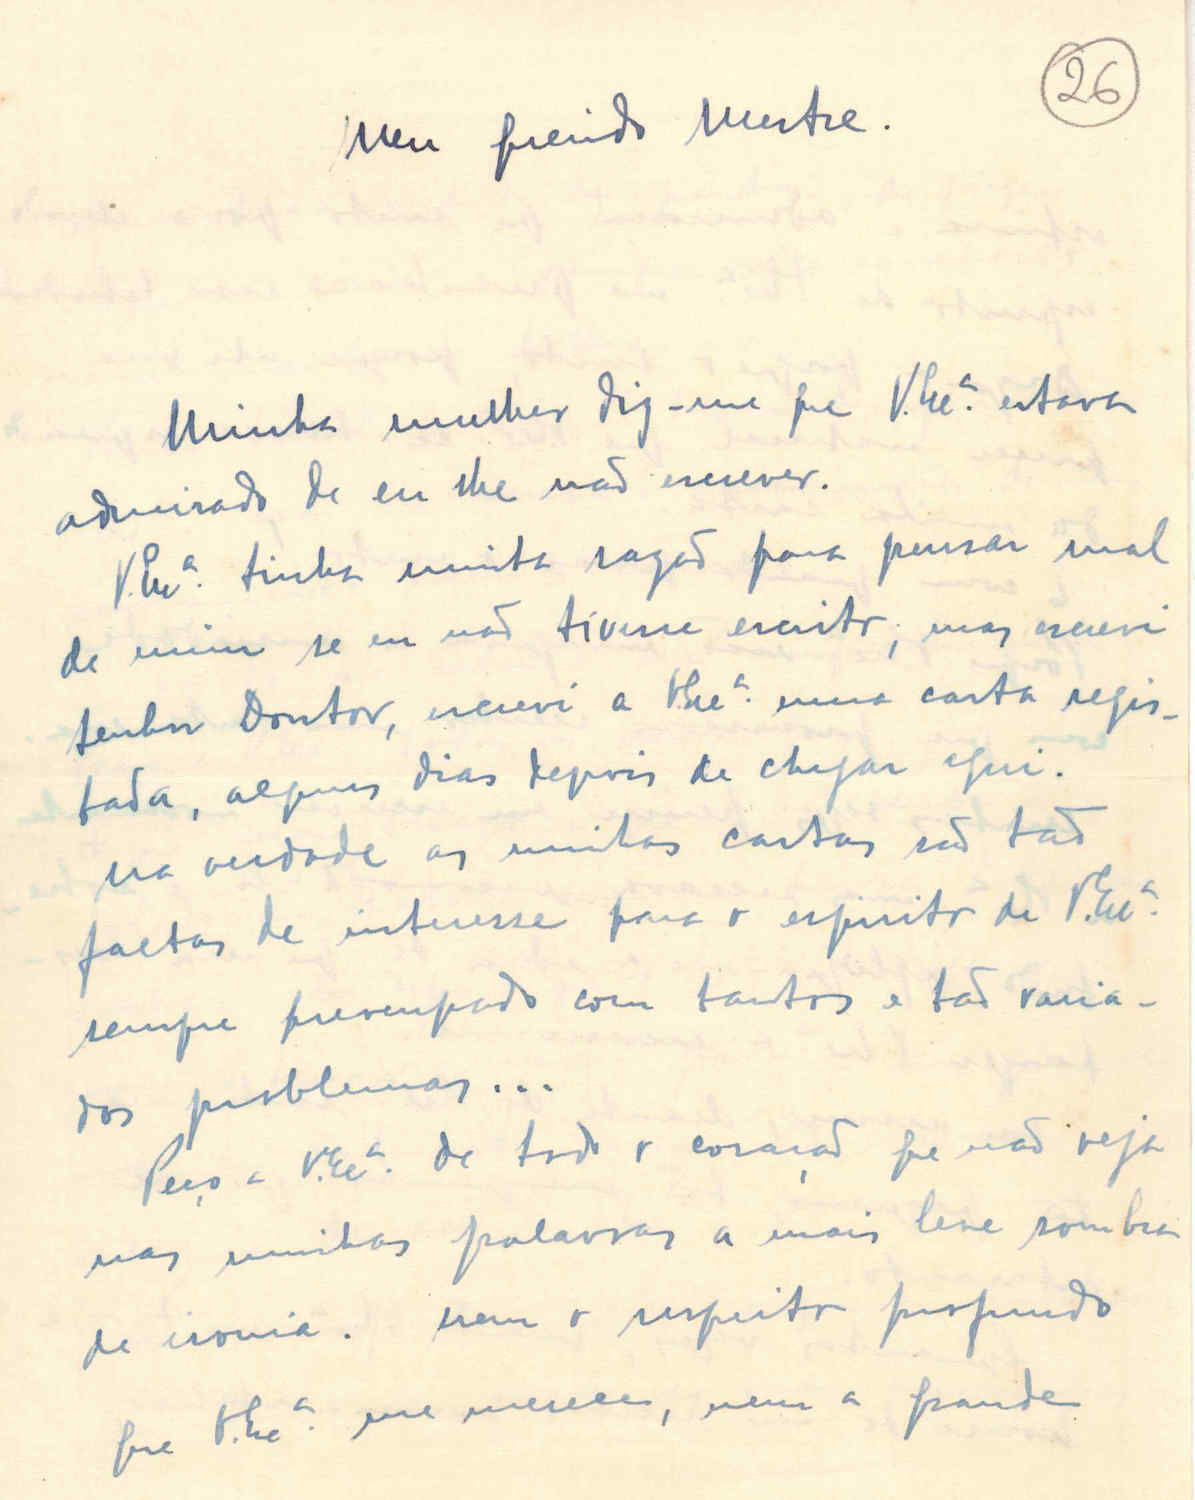 26
Meu querido Mestre.
Minha mulher diz-me que V. Exª. estava
admirado de eu lhe não escrever.
V. Exª. tinha muita razão para pensar mal
de mim se eu não tivesse escrito; mas escrevi
Senhor Doutor, escrevi a V. Exª. uma carta regis-
tada, alguns dias depois de chegar aqui.
Na verdade as minhas cartas são tão
faltas de interesse para o espirito de V. Exª.
sempre preocupado com tantos e tão varia-
dos problemas...
Peço a V. Exª. de todo o coração que não veja
nas minhas palavras a mais leve sombra
de ironia. Nem o respeito profundo
que V. Exª. me merece, nem a grande